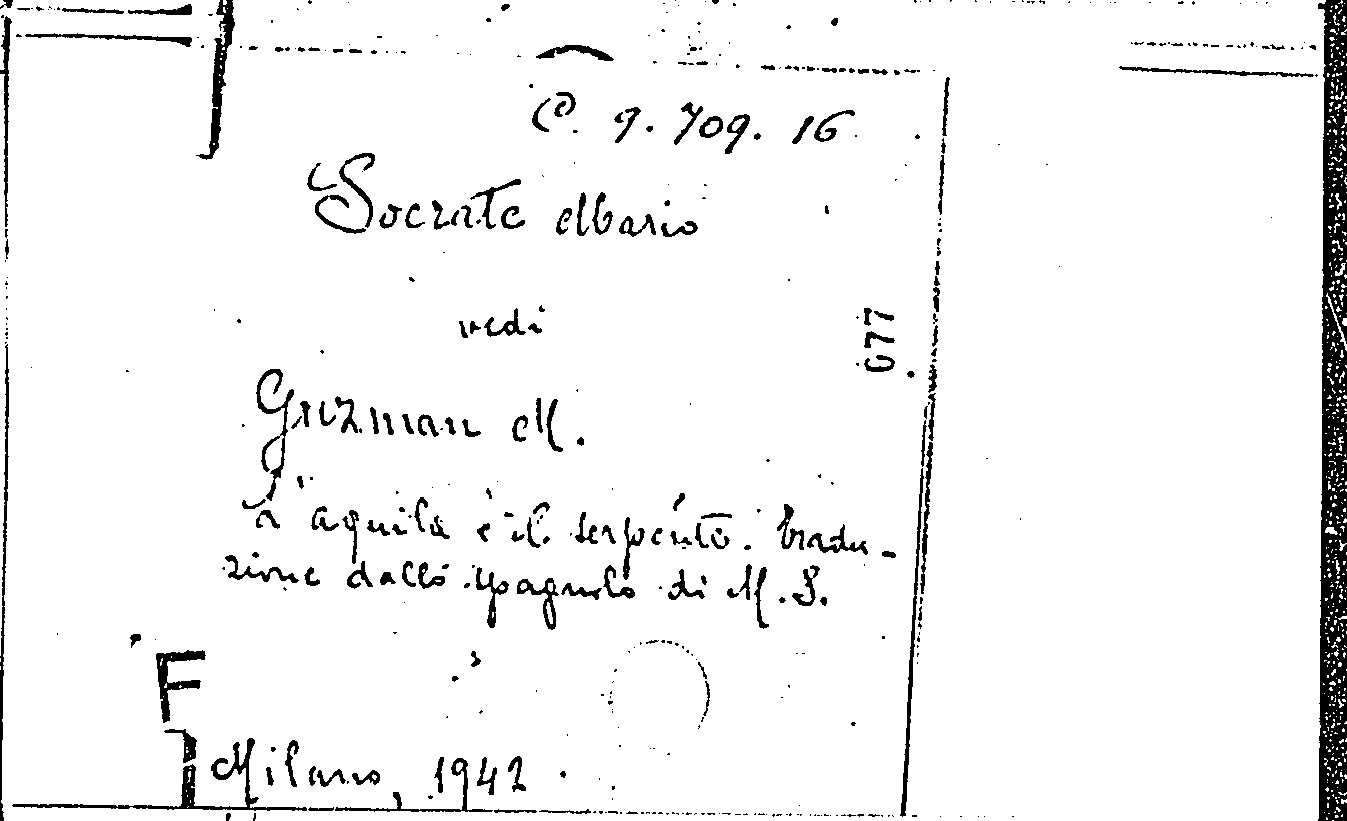 C. 9. 709. 16
Socrate Mario
vedi
677
Guzman M.
L'aquila e il serpente. Tradu-
zione dallo spagnolo di M. S.
F
Milano, 1942